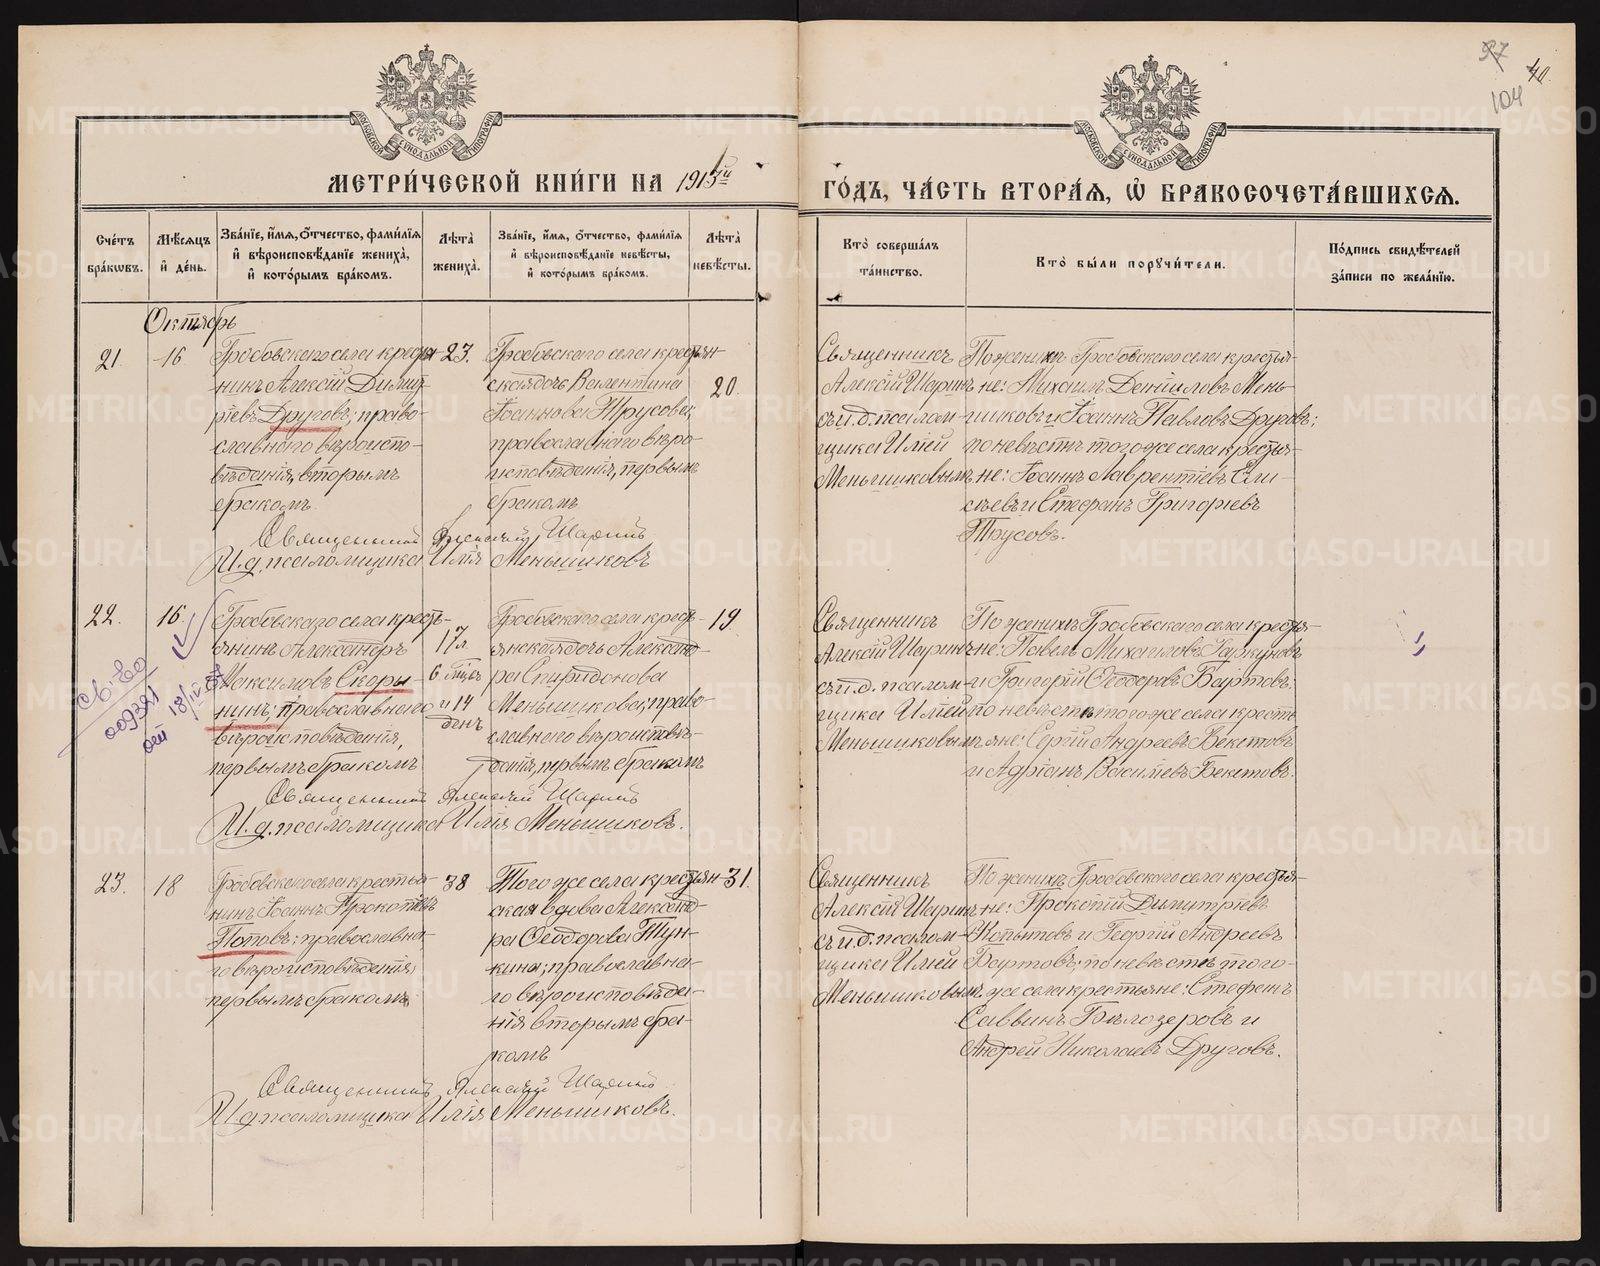 97
40
104
МЕТРИ́ЧЕСКОЙ КНИ́ГИ НА 1915й
ГО́ДЪ, ЧА́СТЬ ВТОРА́Я, Ѡ҆ БРАКОСОЧЕТА́ВШИХСЯ.
Сче́тъ бра́кωвъ.
Мѣ́сяцъ и҆ де́нь.
Зва́нїе, и҆́мя, ѻ҆́тчество, фами́лїя и҆ вѣроисповѣ́данїе жениха̀, и҆ кото́рымъ бра́комъ.
Лѣта̀ жениха̀.
Зва́нїе, и҆́мя, ѻ҆́тчество, фами́лїя и҆ вѣроисповѣ́данїе невѣ́сты, и҆ кото́рымъ бра́комъ.
Лѣта̀ невѣ́сты.
Кто̀ соверша́лъ та́инство.
Кто̀ бы́ли порꙋчи́тели.
По́дпись свидѣ́телей за́писи по жела́нїю.
Октябрь
21.
16
Гробовскаго села крестья
нинъ Алексій Димит-
ріевъ Друговъ; право-
славнаго вѣроиспо-
вѣданія, вторымъ
бракомъ.
23.
Гробовскаго села крестьян
ская дочь Валентина
Іоаннова Трусова;
православнаго вѣро-
исповѣданія, первымъ
бракомъ
20
Священникъ
Алексій Шаринъ
съ и. д. псалом-
щика Иліей
Меньшиковымъ
По женихѣ Гробовскаго села крестья-
не: Михаилъ Даниловъ Мень-
шиковъ и Іоаннъ Павловъ Друговъ;
по невѣстѣ того же села крестья-
не: Іоаннъ Лаврентіевъ Ели-
сѣевъ и Стефанъ Григорьевъ
Трусовъ.
Священникъ Алексѣй Шаринъ
И. д. псаломщика Илія Меньшиковъ
22.
16.
Гробовскаго села кресть-
янинъ Александръ
Максимовъ Скоры-
нинъ; православнаго
вѣроисповѣданія,
первымъ бракомъ
17 л.
6 мѣс.
и 14
денъ
Гробовскаго села кресть-
янская дочь Александ-
ра Спиридонова
Меньшикова; право-
славнаго вѣроисповѣ-
данія, первымъ бракомъ
19.
Священникъ
Алексій Шаринъ
съ и. д. псалом-
щика Иліей
Меньшиковымъ
По женихѣ Гробовскаго села крестья-
не: Павелъ Михаиловъ
и Григорій Ѳеодоровъ Бартовъ;
по невѣстѣ того же села кресть
яне: Сергій Андреевъ Бекетовъ
и Адріанъ Васильевъ Бекетовъ.
Св-во
009391
18/IV-57
Священникъ Алексѣй Шаринъ
И. д. псаломщика Илія Меньшиковъ.
23.
18
Гробовскаго села крестья-
нинъ Іоаннъ Прокопіевъ
Поповъ; православна-
го вѣроисповѣданія,
первымъ бракомъ
38
Того же села крестьян
ская вдова Александ-
ра Ѳеодорова Тун-
кина; православна-
го вѣроисповѣда-
нія вторымъ бра-
комъ
31.
Священникъ
Алексій Шаринъ
съ и. д. псалом-
щика Иліей
Меньшиковымъ
По женихѣ Гробовскаго села крестья-
не: Прокопій Димитріевъ
Копытовъ и Георгій Андреевъ
Бартовъ; по невѣстѣ того-
же села крестьяне: Стефанъ
Саввинъ Бѣлозеровъ и
Андрей Николаевъ Друговъ.
Священникъ Алексѣй Шаринъ
И. д. псаломщика Илія Меньшиковъ.
METRIKI.GASO-URAL.RU